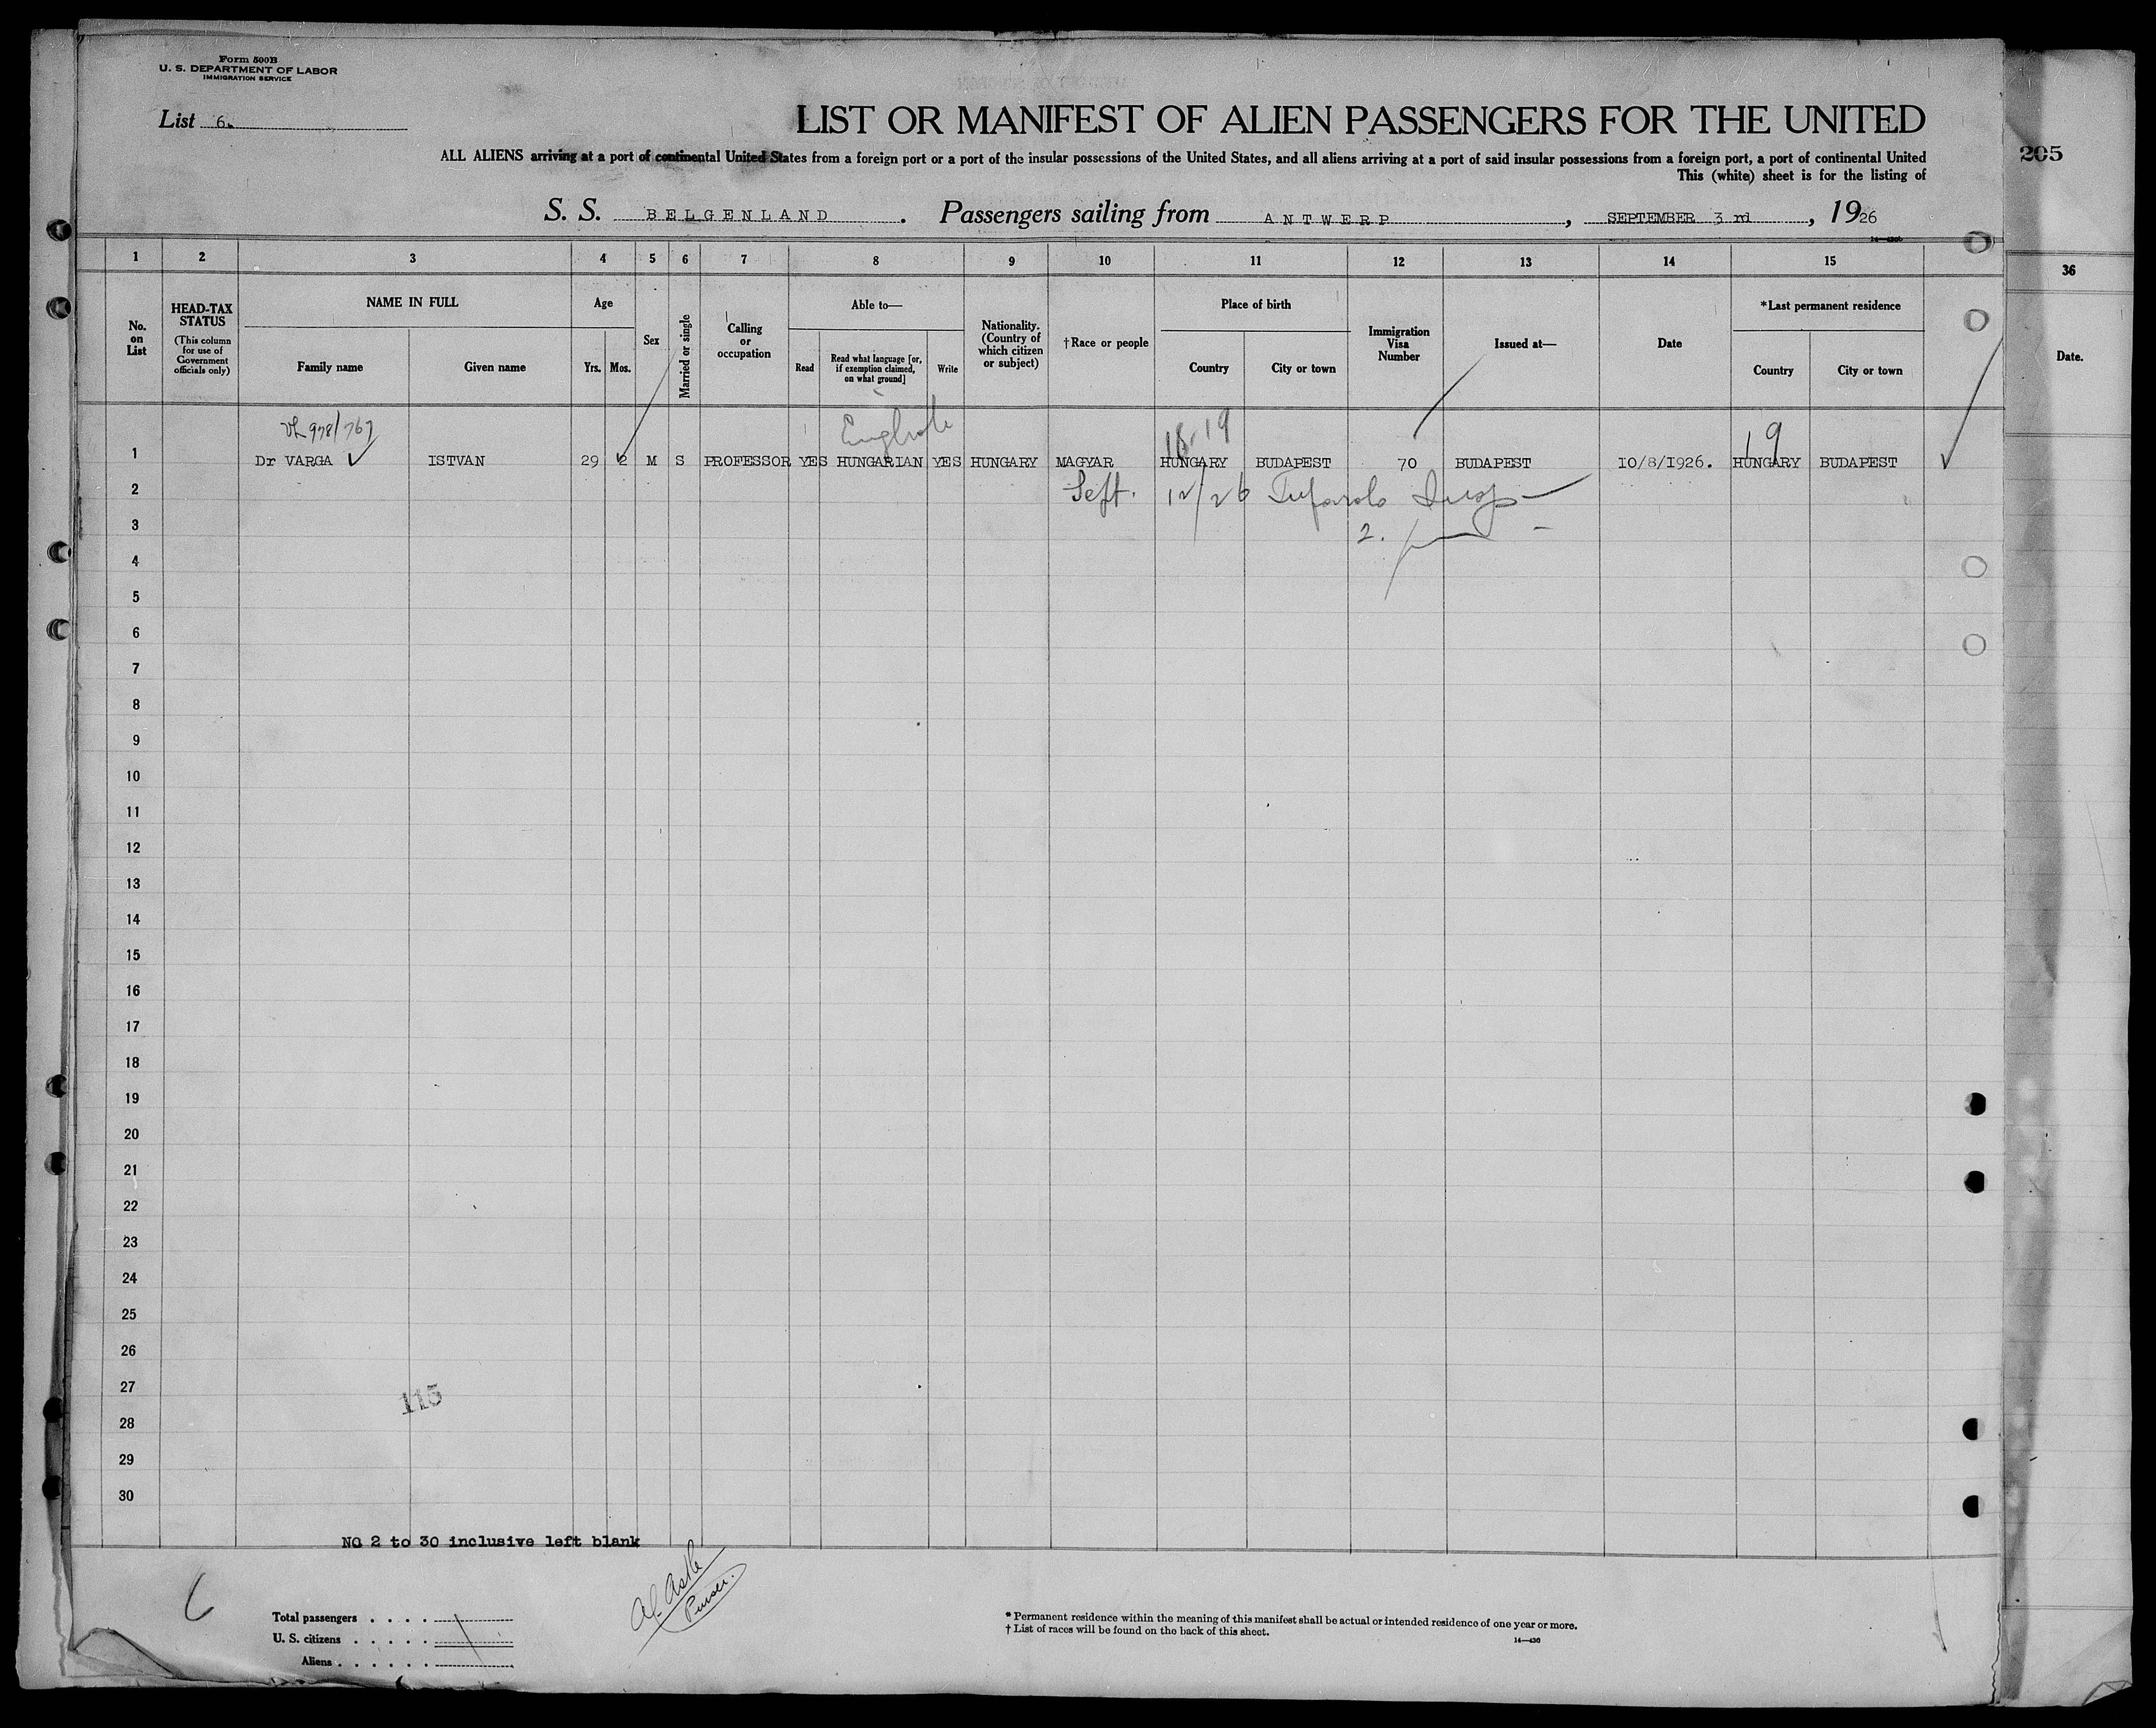 Form 500B
U. S. DEPARTMENT OF LABOR
IMMIGRATION SERVICE
List 6.
LIST OR MANIFEST OF ALIEN PASSENGERS FOR THE UNITED
ALL ALIENS arriving at a port of continental United States from a foreign port or a port of the insular possessions of the United States, and all aliens arriving at a port of said insular possessions from a foreign port, a port of continental United
This (white) sheet is for the listing of
205
S. S. BELGENLAND. Passengers sailing from ANTWERP, SEPTEMBER 3 rd, 1926
1 2 3 4 5 6 7 8 9 10 11 12 13 14 15
36
No. on List
HEAD-TAX STATUS
(This column for use of Government officials only)
NAME IN FULL
Family name
Given name
Age
Yrs.
Mos.
Sex
Married or single
Calling or occupation
Able to—
Read
Read what language [or, if exemption claimed, on what ground]
Write
Nationality. (Country of which citizen or subject)
†Race or people
Place of birth
Country
City or town
Immigration Visa Number
Issued at—
Date
*Last permanent residence
Country
City or town
Date.
18-19
19
1 Dr VARGA ISTVAN 29 2 M S PROFESSOR YES HUNGARIAN YES HUNGARY MAGYAR HUNGARY BUDAPEST 70 BUDAPEST 10/8/1926. HUNGARY BUDAPEST
2 Sept. 12/26
3 2.
4
5
6
7
8
9
10
11
12
13
14
15
16
17
18
19
20
21
22
23
24
25
26
27
115
28
29
30
NO 2 to 30 inclusive left blank
Purser.
Total passengers . . . .
U. S. citizens . . . . .
Aliens . . . . . .
* Permanent residence within the meaning of this manifest shall be actual or intended residence of one year or more.
† List of races will be found on the back of this sheet.
14—430